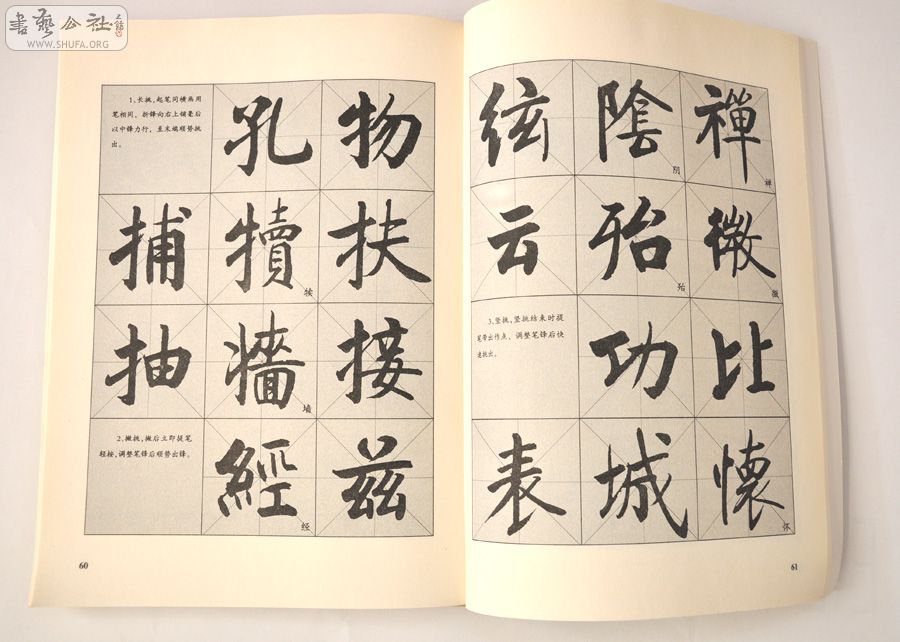 書藝公社
WWW.SHUFA.ORG
1、长挑,起笔同横画用
笔相同，折锋向右上铺毫后
以中锋力行，至末端顺势挑
出。
孔 物
捕 犢 扶
犊
抽 牆 接
墙
2、撇挑,撇后立即提笔
轻按,调整笔锋后顺势出锋。
經 兹
经
60
絃 陰 禪
阴 禅
云 殆 微
殆 微
3、竖挑,竖挑结束时提
笔带出作点，调整笔锋后快
速挑出。
功 比
表 城 懐
怀
61